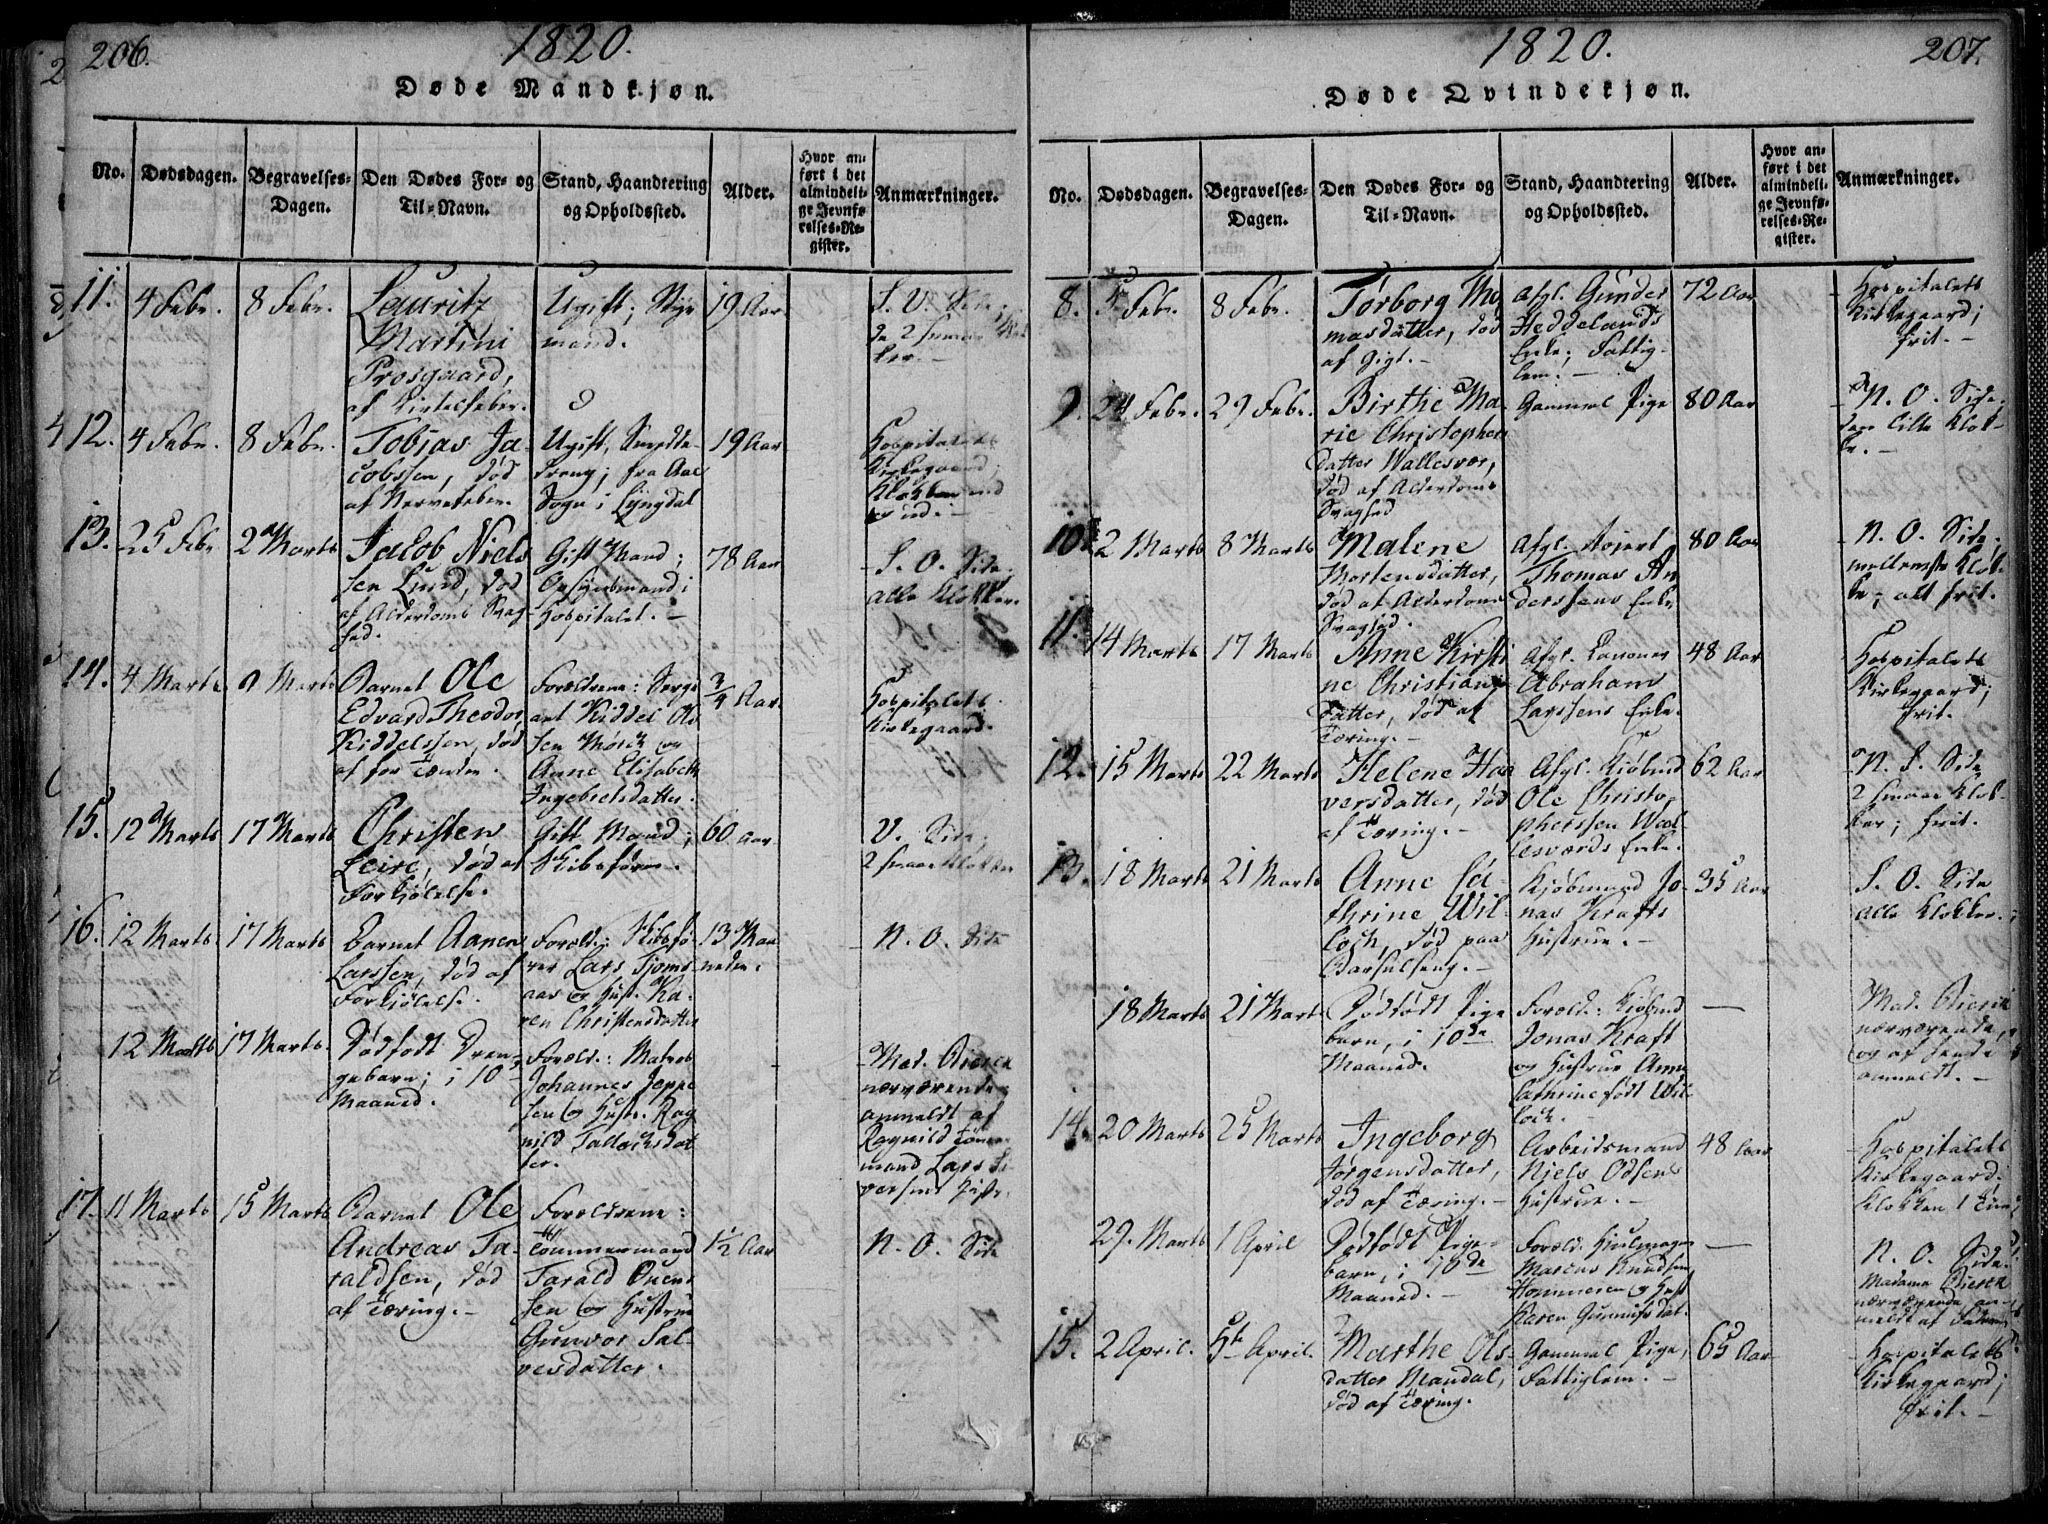 206.
1820.
Døde Mandkjøn.
No.
Dødsdagen.
Begravelses-
Dagen.
Den Dødes For- og
Til-Navn.
Stand, Haandtering
og Opholdssted.
Alder.
Hvor an-
ført i det
almindeli-
ge Jevnfø-
relses-Re-
gister.
Anmærkninger.
11.
4 Febr.
8 Febr.
Lauritz
Martini
Prosgaard,
af
Ugift;
mand.
19 Aar
S. V. Side
12.
4 Febr.
8 Febr.
Tobias Ja-
cobssen, død
af Nervefeber.
Ugift,
dreng; fra
Sogn i Lyngdal
19 Aar
Hospitalets
Kirkegaard;
13.
25 Febr
2 Marts
Jacob Niels
sen Lund, død
af Alderdoms Svag-
hed.
Gift Mand;
Opsynsmand i
Hospitalet.
78 Aar
S. O. Side
alle Klokker.
14.
4 Marts
9 Marts
Barnet Ole
Edvard Theodor
Kiddelssen, død
af for Tænder.
Forældrene: Serge
ant Kiddel Ols
sen Mörch og
Anne Elisabeth
Ingebretsdatter.
3/4 Aar
Hospitalets
Kirkegaard.
15.
12 Marts
17 Marts
Christen
Leire, død af
Forkjølelse.
Gift Mand;
Skibsfører.
60 Aar
V. Side,
2 smaa Klokker
16.
12 Marts
17 Marts
Barnet Aanen
Larssen, død af
Forkjølelse.
Foræld.: Skibsfø-
rer Lars Tjoms-
aas og Hust. Ka-
ren Christensdatter
13 Maa
neder.
N. O. Side
12 Marts
17 Marts.
Dødfødt Dren-
gebarn; i 10
Maaned.
Foræld.: Matros
Johannes Jeppe
sen og Hustr. Rag
nild Tallachsdat-
ter.
Mad. Dierck
nærværende
anmeldt af
Ragnild Tömer
mand Lars
versens Hustr.
17.
11 Marts
15 Marts
Barnet Ole
Andreas Ta-
raldsen, død
af Tæring.
Forældrene:
Tömmermand
Tarald Onens
sen og Hustrue
Gunvor Sal-
vesdatter.
1 1/2 Aar
N. O. Side
1820.
207.
Døde Qvindekjøn.
No.
Dødsdagen.
Begravelses-
Dagen.
Den Dødes For- og
Til-Navn.
Stand, Haandtering
og Opholdssted.
Alder.
Hvor an-
ført i det
almindeli-
ge Jevnfø-
relses-Re-
gister.
Anmærkninger.
8.
5 Febr.
8 Febr.
Torborg Tho
masdatter, død
af Gigt.
Afgl. Gunder
Heddelands
Enke; Fattig-
lem.
72 Aar
Hospitalets
Kirkegaard;
frit.
9.
24 Febr.
29 Febr.
Birthe Ma-
rie Christophers
datter Wallesvær,
død af Alderdoms
Svaghed
Gammel Pige
80 Aar
N. O. Side.
den lille Klok-
ke.
10.
2 Marts
8 Marts
Malene
Mortensdatter,
død af Alderdoms
Svaghed.
Afgl.
Thomas An
derssens Enke
80 Aar
N. O. Side;
mellemste Klok-
ke; alt frit.
11.
14 Marts
17 Marts
Anne Kirsti
ne Christians
datter, død af
Tæring.
Afgl.
Abraham
Larssens Enke.
48 Aar
Hospitalets
Kirkegaard;
frit.
12.
15 Marts
22 Marts
Helene Haa
versdatter, død
af Tæring.
Afgl. Kjøbmd
Ole Christo-
pherssen Wal-
lesværds Enke.
62 Aar
N. S. Side
2 smaa Klok-
ker; frit.
13.
18 Marts
21 Marts
Anne Ca-
thrine Wil-
loch, død paa
Barselseng.
Kjøbmand Jo-
nas Krafts
Hustrue.
35 Aar
S. O. Side
alle Klokker.
18 Marts
21 Marts
Dødfødt Pige
barn, i 10de
Maaned.
Foræld: Kjøbmd
Jonas Kraft
og Hustrue Anne
Cathrine født Wil-
loch.
Mad. Dierck
nærværende,
og af hende
anmeldt.
14.
20 Marts
25 Marts
Ingeborg
Jørgensdatter,
død af Tæring.
Arbeidsmand
Niels Odsens
Hustrue.
48 Aar
Hospitalets
Kirkegaard.
Klokken 1
29. Marts
1 April
Dødfødt Pige-
barn, i 10de
Maaned.
Foræld: Hjulmager
Marcus Knudsen
Hommeren og Hust
Karen Gunnufsdat.
N. O. Side.
Madame Dierck
nærværende, an-
meldt af Faderen
15.
2 April.
5te April.
Marthe Ols-
datter Mandal,
død af Tæring.
Gammel Pige,
Fattiglem.
65 Aar
Hospitalets
Kirkegaard;
frit.